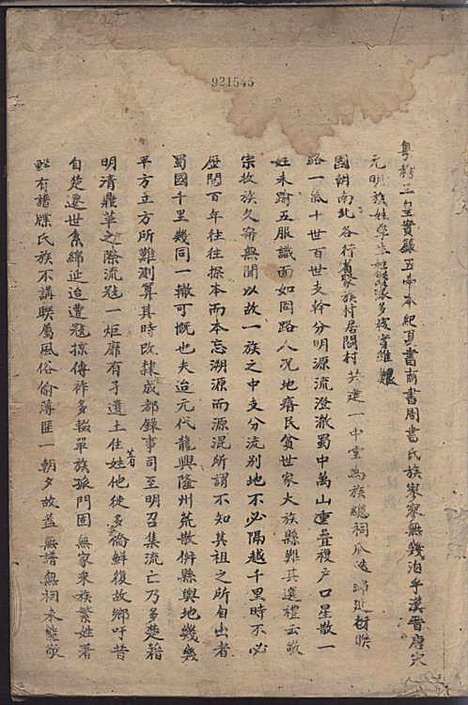 921545
粵稽三皇實錄五帝本紀夏書商書周書氏族寥寥無幾洎乎漢晉唐宋
元明族姓
國朝南北各行省家族村居閭村共建一中堂為族總祠瓜
路一派十世百世支幹分明源流澄澈蜀中萬山重叠稷户口星散一
姓未踰五服識面如同路人况地瘠民貧世家大族縣難其選禮云敬
宗收族久寂無聞以故一族之中支分流别地不必隔越千里時不必
歷閱百年往往探本而本忘溯源而源混所謂不知其祖之所自出者
蜀國千里幾同一轍可慨也夫迨元代龍興隆州荒散併縣輿地幾幾
平方立方所難測算其時改隸成都錄事司至明召集流亡乃多楚籍
明清鼎革之際流寇一炬靡有孑遺土著住姓他徙多倫鮮復故鄉吁昔
自楚遷世系綿延迨遭寇掠傳祚多輟單族孤門固無家乘族繁姓著
尠有譜牒氏族不講聯屬風俗偷薄匪一朝夕故蓋無譜無祠未能敬